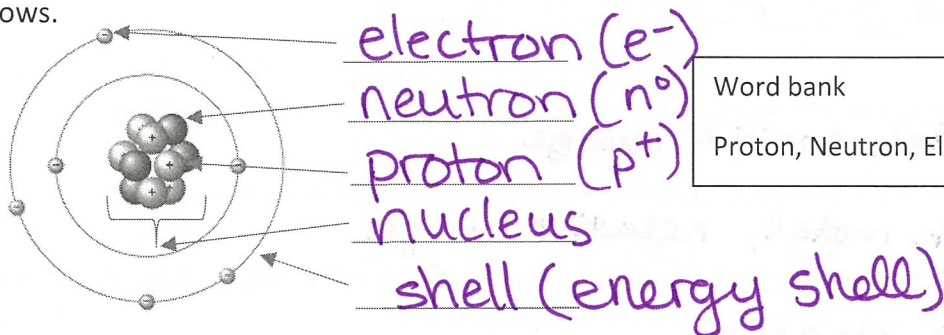 ows.
electron (e⁻)
neutron (n⁰)
proton (p⁺)
nucleus
shell (energy shell)
Word bank
Proton, Neutron, El